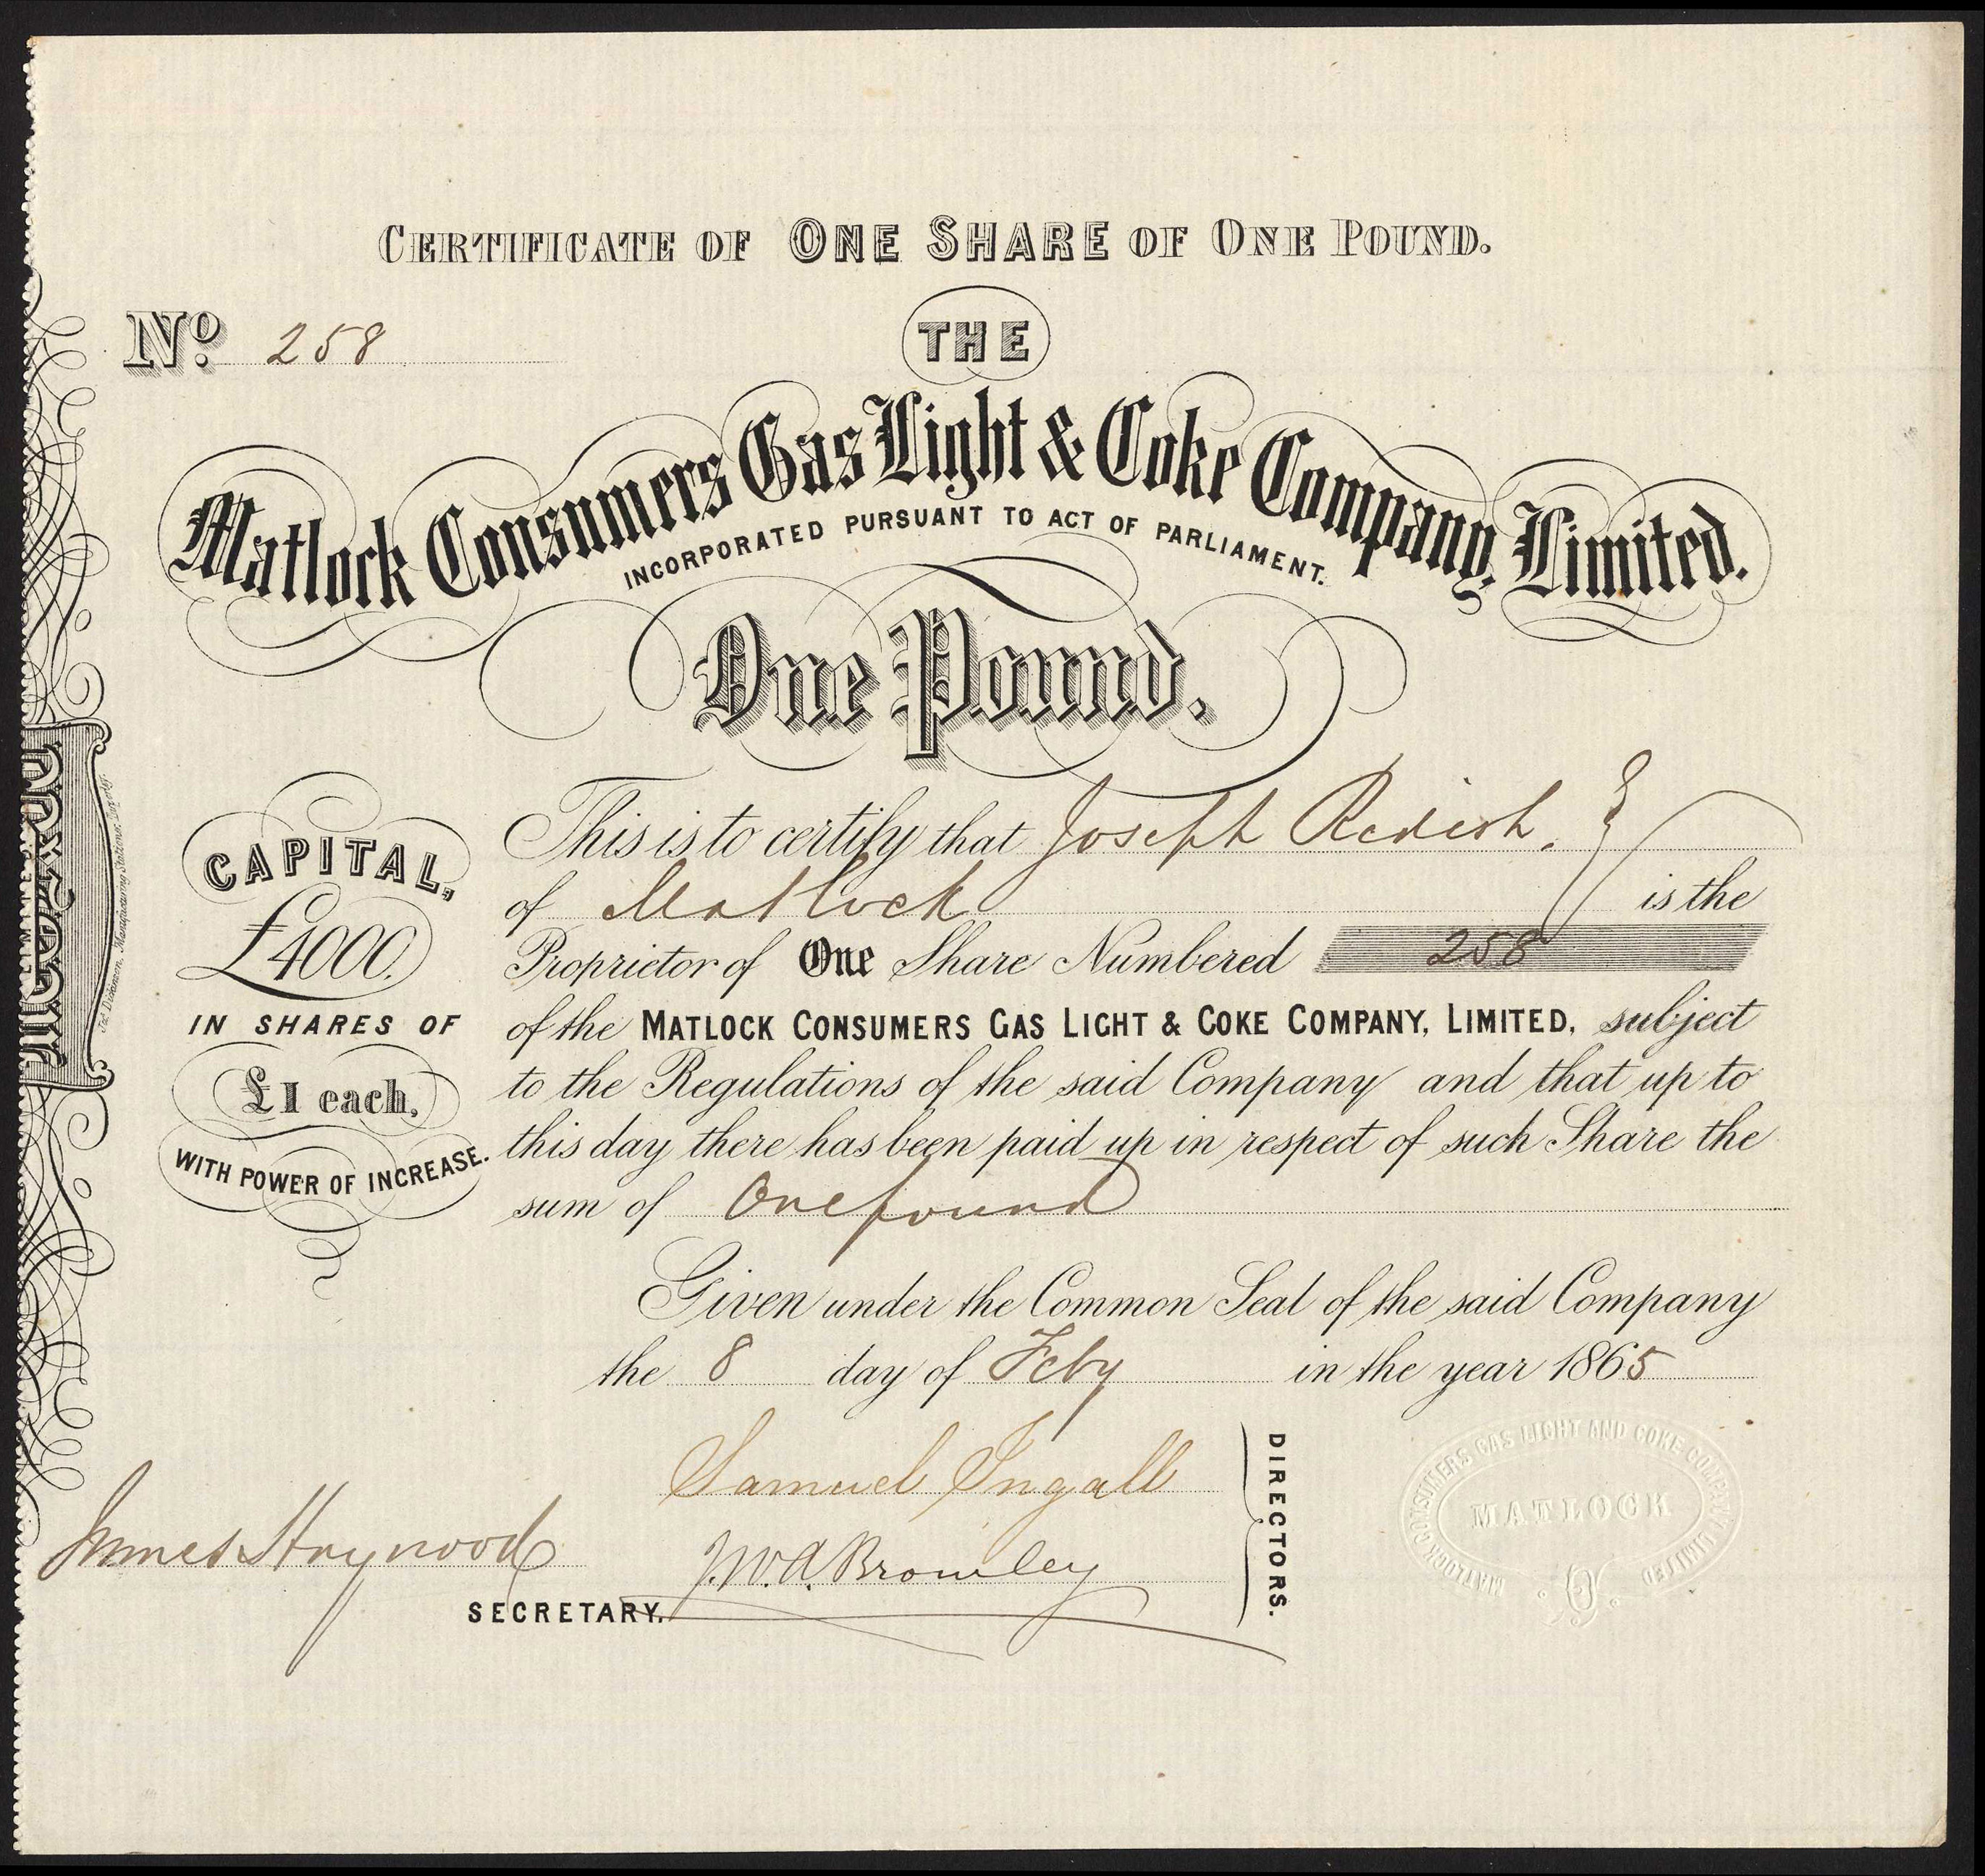 CERTIFICATE OF ONE SHARE OF ONE POUND.
No. 258
THE
Matlock Consumers Gas Light & Coke Company, Limited.
INCORPORATED PURSUANT TO ACT OF PARLIAMENT.
One Pound.
CAPITAL,
£4000.
IN SHARES OF
£1 each,
WITH POWER OF INCREASE.
This is to certify that Joseph Redish.
of Matlock is the
Proprietor of One Share Numbered 258
of the MATLOCK CONSUMERS GAS LIGHT & COKE COMPANY, LIMITED, subject
to the Regulations of the said Company and that up to
this day there has been paid up in respect of such Share the
sum of One pound
Given under the Common Seal of the said Company
the 8 day of Feby in the year 1865
Samuel Ingall
J.W.A. Browley
DIRECTORS.
James Haywood
SECRETARY.
MATLOCK CONSUMERS GAS LIGHT AND COKE COMPANY LIMITED
MATLOCK
Manufacturing Stationer, Derby.